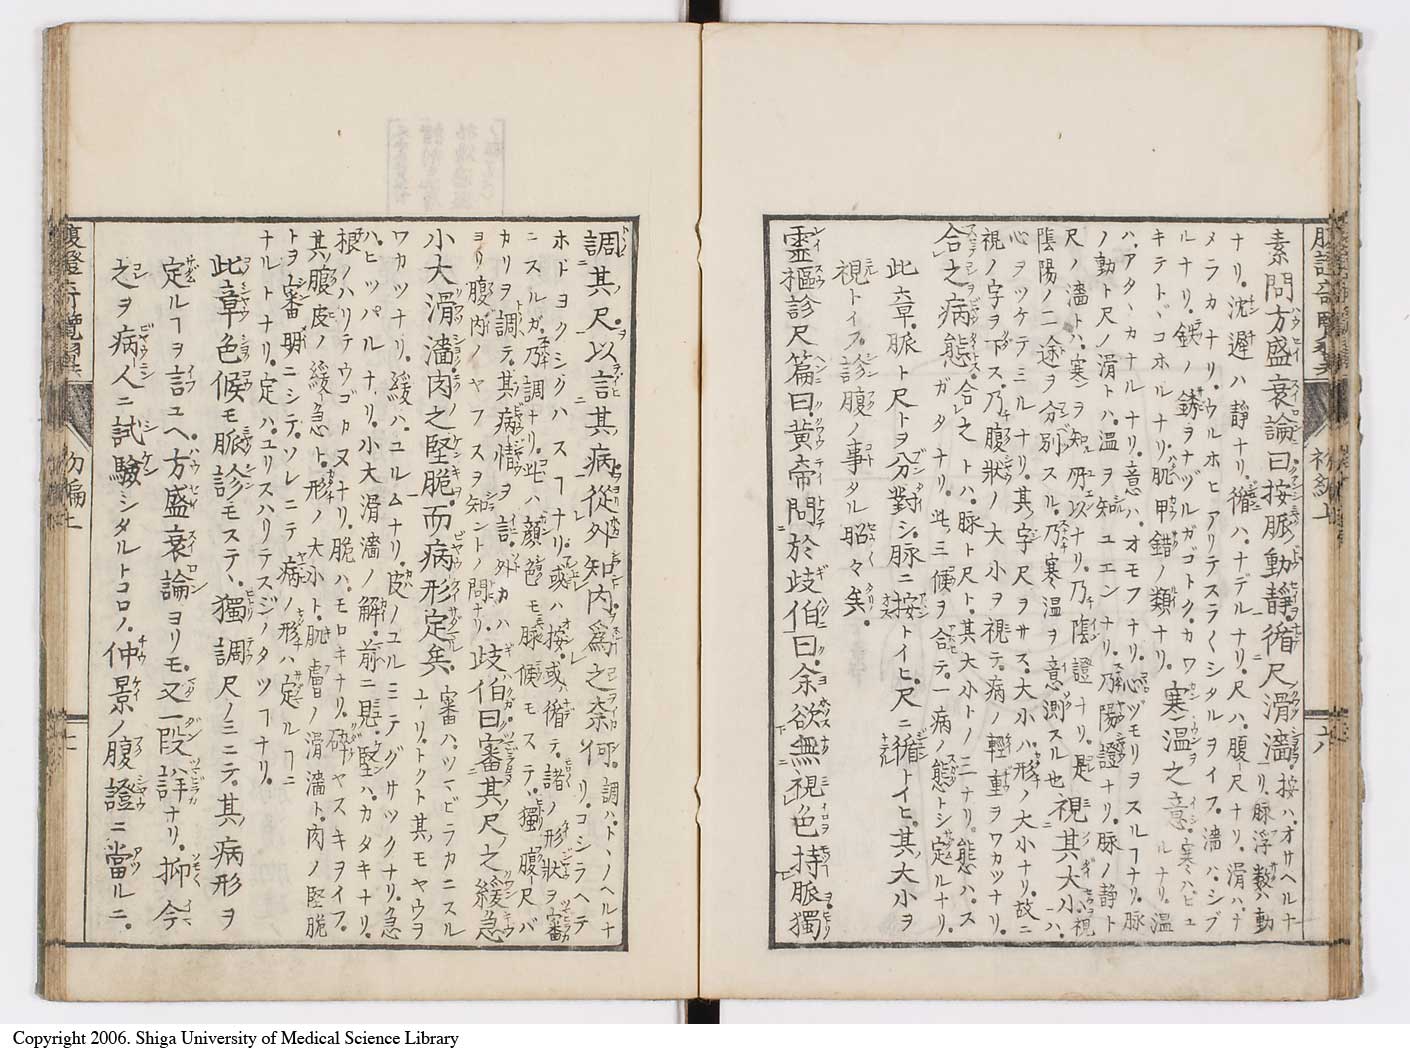 素問方盛衰論曰按脈動靜循尺滑濇按ハオサヘルナ
ナリ沈遲ハ静ナリ循ハナデルナリ尺ハ腹尺ナリ滑ハナ
メラカナリウルホヒアリテスラ〱シタルヲイフ濇ハシブ
ルナリ銕ノ錆ヲナヅルガゴトクカワ
キテトドコホルナリ肌甲錯ノ類ナリ寒温之意
ハアタヽカナルナリ意ハオモフナリ心ヅモリヲスルヿナリ脈
ノ動ト尺ノ滑トハ温ヲ知ユエンナリ乃陽證ナリ脈ノ静ト
尺ノ濇トハ寒ヲ知所以ナリ乃陰證ナリ是
陰陽ノ二途ヲ分別スル乃寒温ヲ意測スル也視其大小
心ヲツケテミルナリ其字尺ヲサス大小ハ形ノ大小ナリ故ニ
視ノ字ヲ下ス乃腹狀ノ大小ヲ視テ病ノ輕重ヲワカツナリ
合之病態合之トハ脈ト尺ト其大小トノ三ナリ態ハス
ガタナリ此三候ヲ合テ一病ノ態トシ定ルナリ
此章脈ト尺トヲ分對シ脈ニ按トイヒ尺ニ循トイヒ其大小ヲ
視トイフ診腹ノ事タル昭々矣
靈樞診尺篇曰黄帝問於歧伯曰余欲無視色持脈獨
六
調其尺以言其病從外知内爲之奈何調ハトヽノヘルナ
リコシラヘテ
ホドヨクシクハスルヿナリ或ハ按或ハ循テ諸ノ形狀ヲ審
ニスルガ乃調ナリ此ハ顔色モ脈候モステ獨腹尺バ
カリヲ調テ其病情ヲ言外カハ
ヨリ腹内ノヤフスヲ知ントノ問ナリ歧伯曰審其尺之緩急
小大滑濇肉之堅脆而病形定矣審ハツマビラカニスル
ナリトクト其モヤウヲ
ワカツナリ緩ハユルムナリ皮ノユルミテグサツクナリ急
ハヒツパルナリ小大滑濇ノ解前ニ見堅ハカタキナリ
根ノハリテウゴカヌナリ脆ハモロキナリ碎ヤスキヲイフ
其腹皮ノ緩急ト形ノ大小ト肌膚ノ滑濇ト肉ノ堅脆
トヲ審明ニシテソレニテ病ノ形ハ定ルヿニ
ナルトナリ定ハユリスハリテスジノタツヿナリ
此章色候モ脈診モステヽ獨調尺ノミニテ其病形ヲ
定ルヿヲ言ユヘ方盛衰論ヨリモ又一段詳ナリ抑今
之ヲ病人ニ試驗シタルトコロノ仲景ノ腹證ニ當ルニ
腹證奇覽翼
初編上
Copyright 2006. Shiga University of Medical Science Library